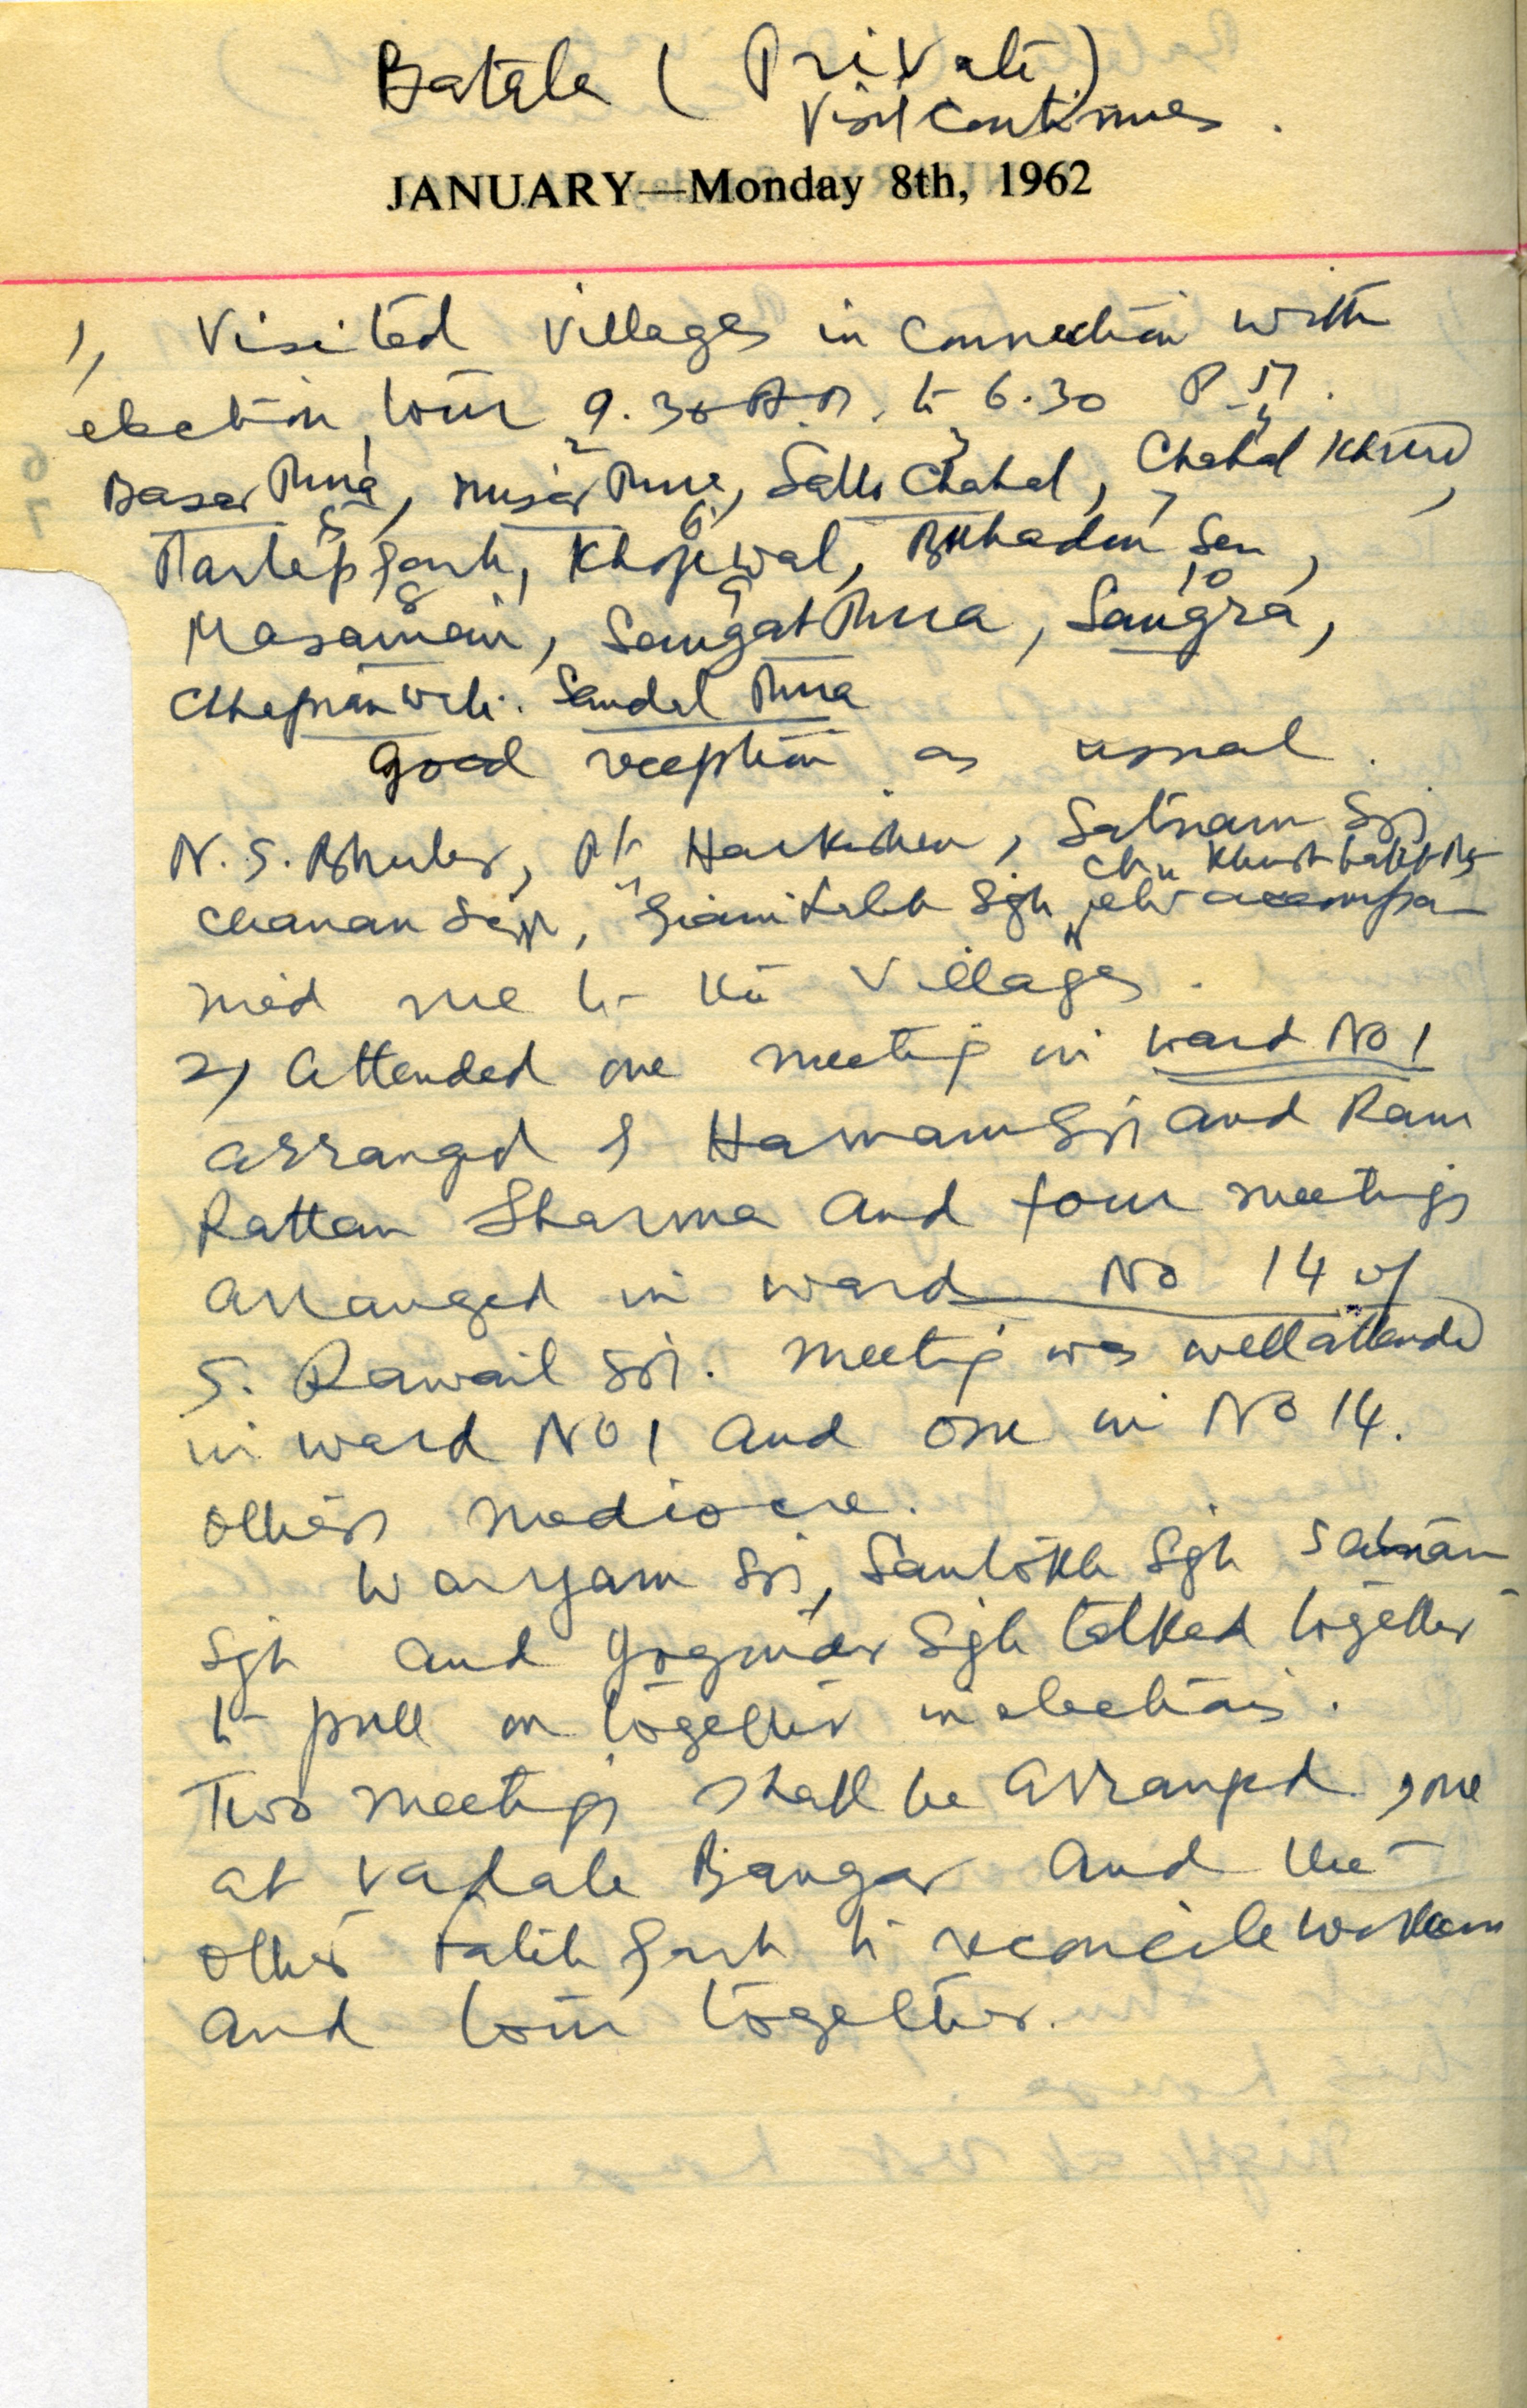 Batala (Private)
Visit Continues.
JANUARY—Monday 8th, 1962
1, Visited Villages in Connection with
election tour 9.30 A.M. to 6.30 P.M.
1 2 3 4
BasarPura, MusaPura, Sallo Chahal, Chahal Khurd,
5 6 7
Partap Garh, Khojewal, Buhadin Sen,
8 9 10
Masanian, SangatPura, Sangra,
Chhapianwali. Sandal Pura
Good reception as usual.
N.S. Bhuler, Pt Harkishen, Satnam Sgh
Ch.
Chanan Singh, Giani Labh Sgh etc accompa
nied me to the Villages.
2, Attended one meeting in ward No 1
arranged by Harnam Sgh and Ram
Rattan Sharma and four meetings
arranged in ward No 14 of
S. Rawail Sgh. Meeting was well attended
in ward No 1 and one in No 14.
Others mediocre.
Waryam Sgh, Santokh Sgh Satnam
Sgh and Yoginder Sgh talked together
to pull on together in elections.
Two meetings shall be arranged, one
at Vadala Bangar and the
other Fateh Garh to reconcile workers
and tour together.